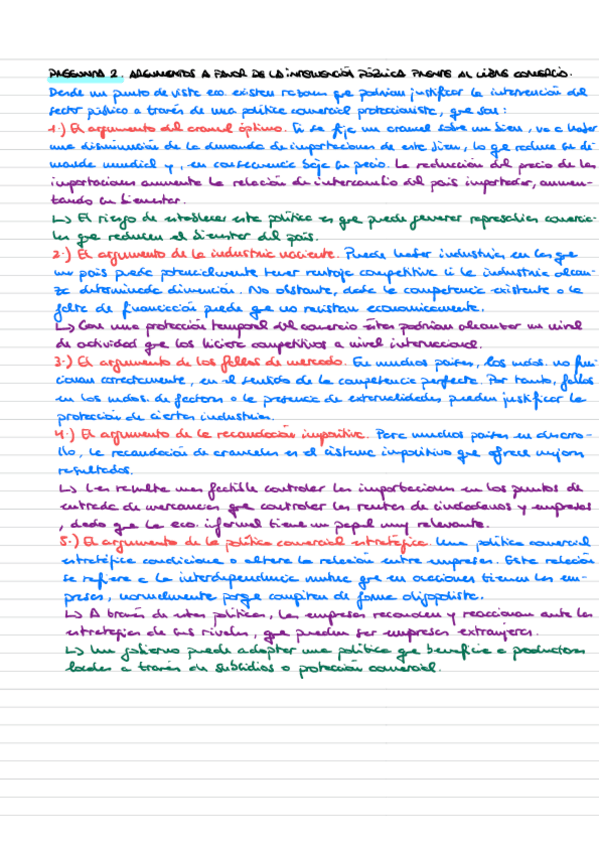 PREGUNTA 2. ARGUMENTOS A FAVOR DE LA INTERVENCIÓN PÚBLICA FRENTE AL LIBRE COMERCIO.
Desde un punto de vista eco. existen razones que podrían justificar la intervención del
sector público a través de una política comercial proteccionista, que son:
1.) El argumento del arancel óptimo. Si se fija un arancel sobre un bien, va a haber
una disminución de la demanda de importaciones de este bien, lo que reduce su de-
manda mundial y, en consecuencia baja su precio. La reducción del precio de las
importaciones aumenta la relación de intercambio del país importador, aumen-
tando su bienestar.
↳ El riesgo de establecer esta política es que puede generar represalias comercia-
les que reducen el bienestar del país.
2.) El argumento de la industria naciente. Puede haber industrias en las que
un país puede potencialmente tener ventaja competitiva si la industria alcan-
za determinada dimensión. No obstante, dada la competencia existente o la
falta de financiación puede que no resistan económicamente.
↳ Con una protección temporal del comercio éstas podrían alcanzar un nivel
de actividad que las hiciera competitivas a nivel internacional.
3.) El argumento de los fallos de mercado. En muchos países, los mdos. no fun-
cionan correctamente, en el sentido de la competencia perfecta. Por tanto, fallos
en los mdos. de factores o la presencia de externalidades pueden justificar la
protección de ciertas industrias.
4.) El argumento de la recaudación impositiva. Para muchos países en desarro-
llo, la recaudación de aranceles es el sistema impositivo que ofrece mejores
resultados.
↳ Les resulta más factible controlar las importaciones en los puntos de
entrada de mercancías que controlar las rentas de ciudadanos y empresas
, dado que la eco. informal tiene un papel muy relevante.
5.) El argumento de la política comercial estratégica. Una política comercial
estratégica condiciona o altera la relación entre empresas. Esta relación
se refiere a la interdependencia mutua que en acciones tienen las em-
presas, normalmente porque compiten de forma oligopolista.
↳ A través de estas políticas, las empresas recuerdan y reaccionan ante las
estrategias de sus rivales, que pueden ser empresas extranjeras.
↳ Un gobierno puede adoptar una política que beneficie a productores
locales a través de subsidios o protección comercial.